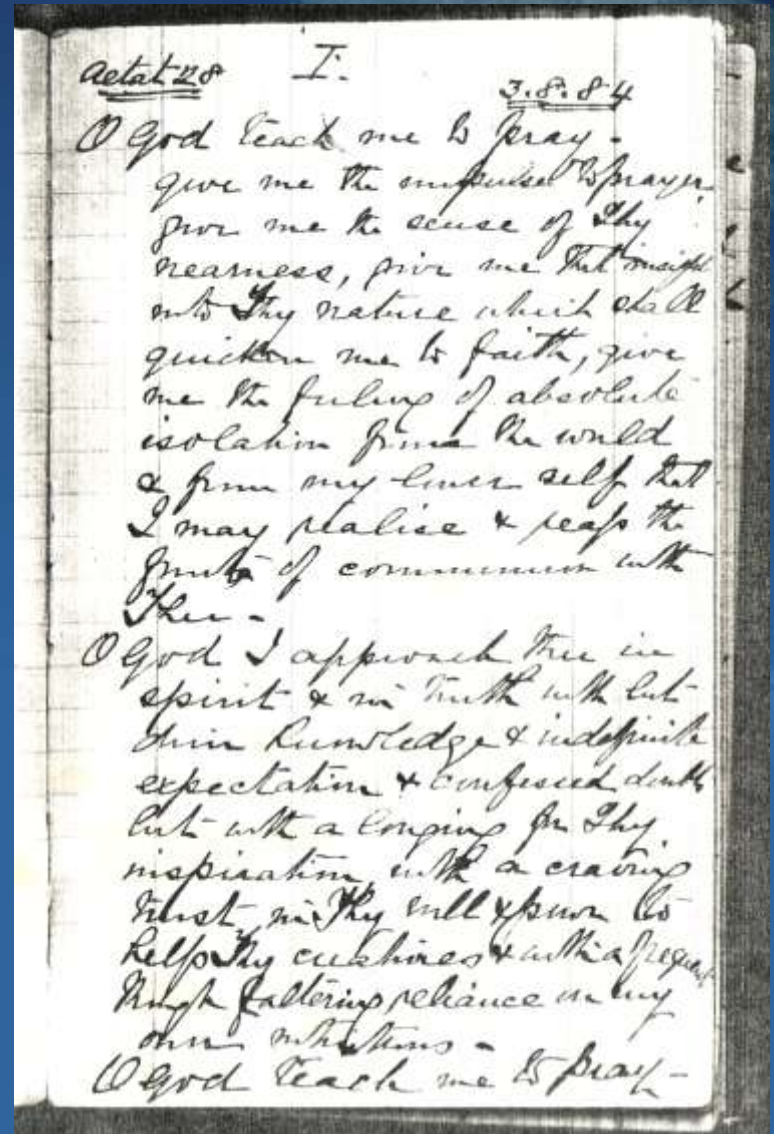 Aetat 28 I. 3.8.84
O God teach me to pray -
give me the impulse to prayer
give me the sense of Thy
nearness, give me that insight
into Thy nature which shall
quicken me to faith, give
me the feeling of absolute
isolation from the world
& from my lower self that
I may realise & reap the
fruits of communion with
Thee -
O God I approach thee in
spirit & in truth with but
dim knowledge & indefinite
expectation & confused doubt
but with a longing for Thy
inspiration, with a craving
trust in Thy will & power to
help Thy creatures & with a frequent
though faltering reliance on my
own intuitions -
O God teach me to pray -